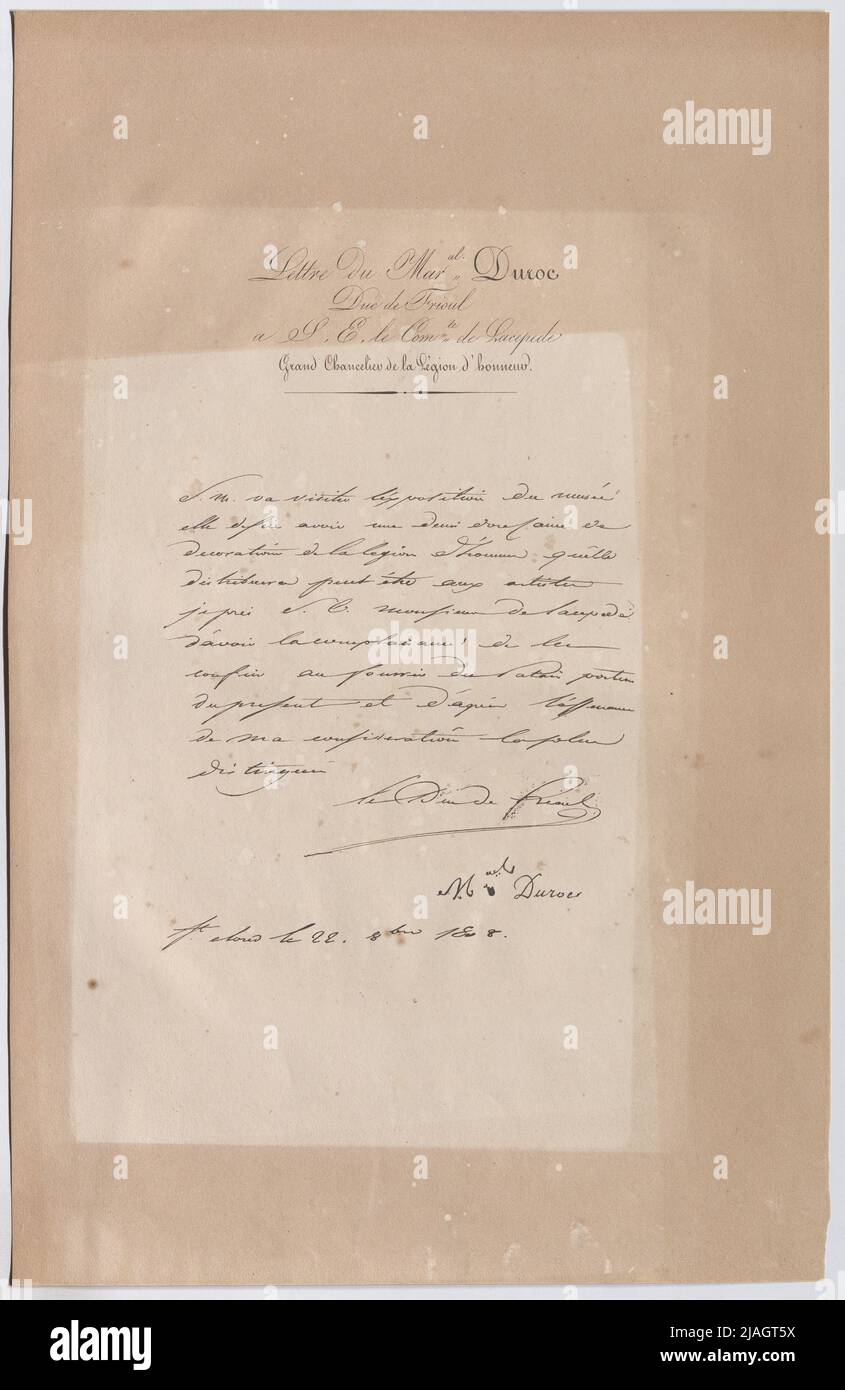 Lettre du Mar.al Duroc
Duc de Frioul
a S. E. le Com.te de Lacepede
Grand Chancelier de la Légion d'honneur.
S. m. va visiter l'exposition du musée
elle desire avoir une demi douzaine de
decoration de la legion d'honneur quelle
distribuera peut être aux artistes
je prie S. E. monsieur de lacepede
d'avoir la complaisance de les
confier au fourrier du Palais porteur
du present et d'agréer l'assurance
de ma consideration la plus
distinguée
le Duc de frioul
M.al Duroc
St. cloud le 22. 8bre 1808.
alamy
alamy
Image ID: 2JAGT5X
www.alamy.com